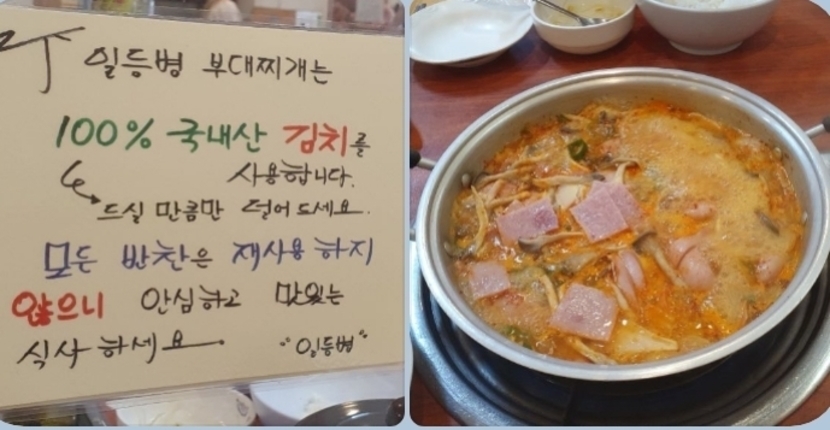 일등병 부대찌개는
100% 국내산 김치를
사용합니다.
드실 만큼만 덜어 드세요.
모든 반찬은 재사용 하지
않으니 안심하고 맛있는
식사 하세요 "일등병"